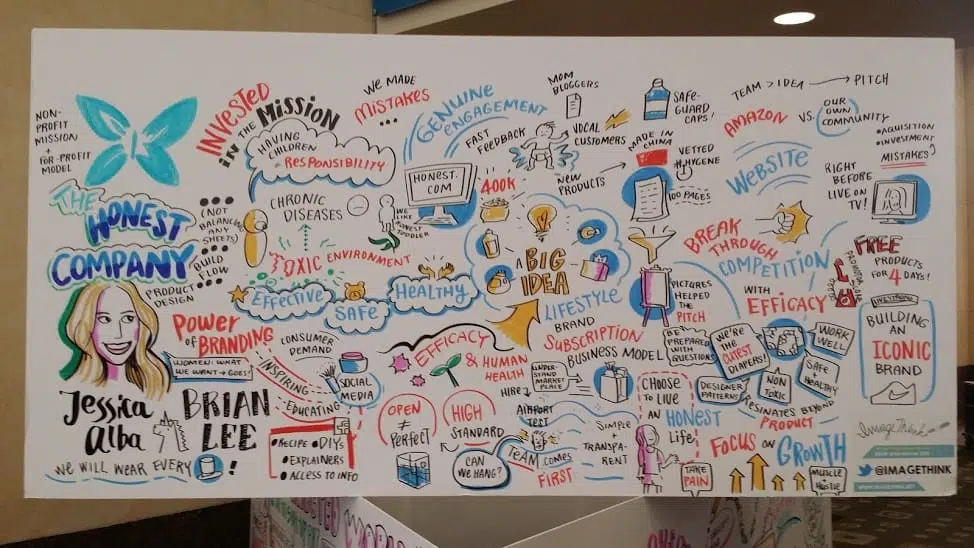 NON-
PROFIT
MISSION
+
FOR-PROFIT
MODEL
THE
HONEST
COMPANY
(NOT
BALANCE
ANY
SHEETS)
BUILD
FLOW
PRODUCT
DESIGN
Jessica
Alba
BRIAN
LEE
WE WILL WEAR EVERY
!
INVESTED
IN THE MISSION
HAVING
CHILDREN
= RESPONSIBILITY
CHRONIC
DISEASES
TOXIC ENVIRONMENT
EFFECTIVE
SAFE
HEALTHY
POWER
OF BRANDING
WOMEN: WHAT
WE WANT → GOES!
CONSUMER
DEMAND
INSPIRING
EDUCATING
SOCIAL
MEDIA
• RECIPE • DIYs
• EXPLAINERS
• ACCESS TO INFO
WE MADE
MISTAKES
...
GENUINE
ENGAGEMENT
HONEST.
COM
FAST
FEEDBACK
400K
MOM
BLOGGERS
VOCAL
CUSTOMERS
NEW
PRODUCTS
A
BIG
IDEA
LIFESTYLE
BRAND
EFFICACY
& HUMAN
HEALTH
OPEN
≠
PERFECT
HIGH
STANDARD
CAN
WE HANG?
HIRE
AIRPORT
TEST
TEAM COMES
FIRST
SUBSCRIPTION
BUSINESS MODEL
UNDER-
STAND
MARKET
PLACE
SIMPLE
+
TRANSPA-
RENT
SAFE-
GUARD
CAPS!
MADE IN
CHINA
VETTED
#HYGIENE
100 PAGES
PICTURES
HELPED
THE
PITCH
TEAM > IDEA → PITCH
AMAZON
VS.
OUR
OWN
COMMUNITY
• AQUISITION
• INVESTMENT
MISTAKES?
WEBSITE
RIGHT
BEFORE
LIVE ON
TV!
BREAK
THROUGH
COMPETITION
WITH EFFICACY
FREE
PRODUCTS
FOR 4 DAYS!
BE
PREPARED
WITH
QUESTIONS
WE'RE
THE
CUTEST
DIAPERS!
DESIGNER
PATTERNS
NON
TOXIC
SAFE
+
HEALTHY
WORK
WELL
RESINATES BEYOND
PRODUCT
LIVESTRONG
BUILDING
AN
ICONIC
BRAND
CHOOSE
TO LIVE
AN
HONEST
Life!
TAKE
PAIN
FOCUS ON
GROWTH
MUSCLE
+
HUSTLE
ImageThink
@IMAGETHINK